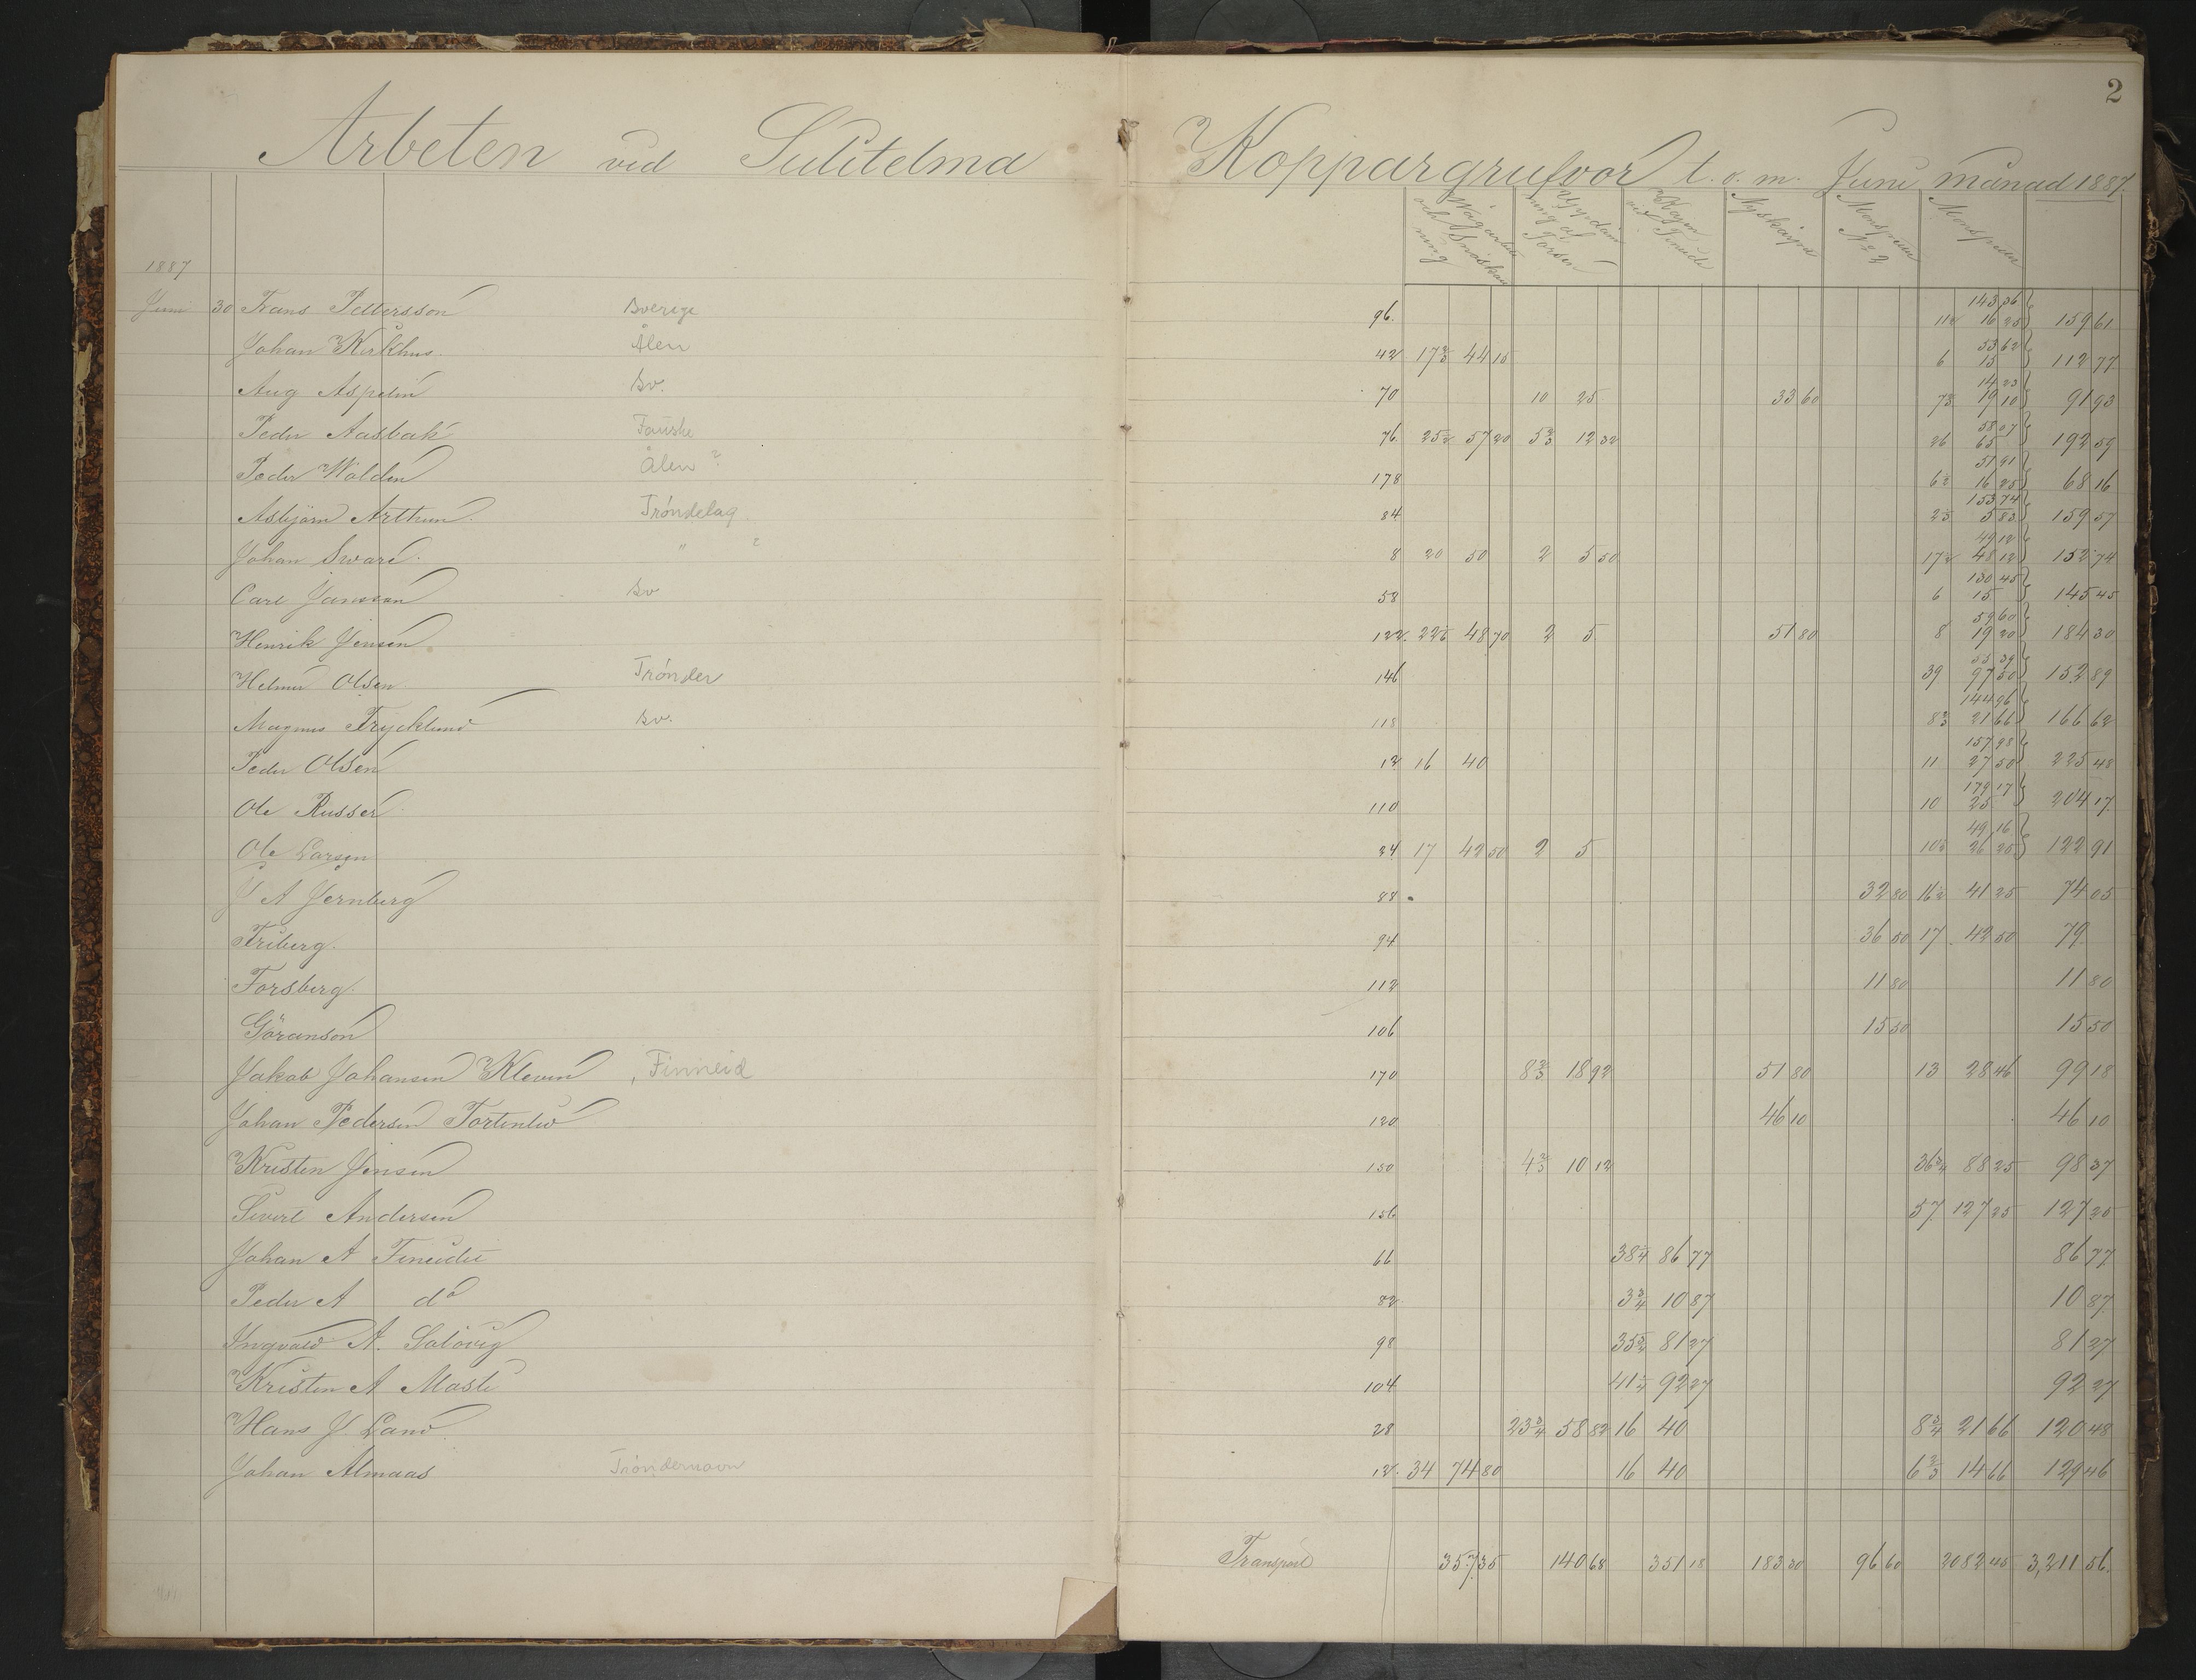 2
Arbeten vid Sulitelma Koppargrufvor t. o. m. Juni månad 1887.
Vägarbete och Snöskottning
Uppdämning af Forsen
Kajen vid Fineide
Nyskäring
Monspetten No 2
Monspetten
1887
Juni 30 Frans Pettersson Sverige 96. 143 36 11½ 16 25 159 61
Johan Kirkhus. Ålen 42 17⅔ 44 15 53 62 6 15 112 77
Aug Aspelin Sv. 70 10 25 33 60 14 23 7⅔ 19 10 91 93
Peder Aasbak Fauske 76 25½ 57 20 5⅔ 12 32 58 07 26 65 192 59
Peder Walden Ålen ? 178 51 91 6½ 16 25 68 16
Asbjörn Arthun. Trøndelag 84 153 74 2⅓ 5 83 159 57
Johan Svare. " ? 8 20 50 2 5 50 49 12 17½ 48 12 152 74
Carl Jansson Sv 58 130 45 6 15 145 45
Henrik Jensen 122 48 70 2 5 51 80 59 60 8 19 20 184 30
Helmer Olsen Trønder 146 55 39 39 97 50 152 89
Magnus Trycklund Sv. 118 144 96 8⅔ 21 66 166 62
Peder Olsen 12 16 40 157 98 11 27 50 225 48
Ole Russer 110 179 17 10 25 204 17
Ole Larsen 24 17 42 50 2 5 49 16 10½ 26 25 122 91
J A Jernberg 88 32 80 16½ 41 25 74 05
Friberg. 94 36 50 17 42 50 79
Forsberg. 112 11 80 11 80
Göranson 106 15 50 15 50
Jakob Johansen Kleven , Finneid 170 8⅔ 18 92 51 80 13 28 46 99 18
Johan Pedersen 120 46 10 46 10
Kristen Jensen 150 4⅔ 10 12 36¾ 88 25 98 37
Sivert Andersen 156 57 127 25 127 25
Johan A Fineidet 66 38¼ 86 77 86 77
Peder A do 82 3¾ 10 87 10 87
Ingvald A. 98 35¾ 81 27 81 27
Kristen A 104 41¼ 92 27 92 27
Hans J Land 28 23¾ 58 82 16 40 8¾ 21 66 120 48
Johan Almaas Trøndernavn 12. 34 74 80 16 40 6⅔ 14 66 129 46
Transport 357 35 140 68 351 18 183 30 96 60 2082 45 3,211 56.